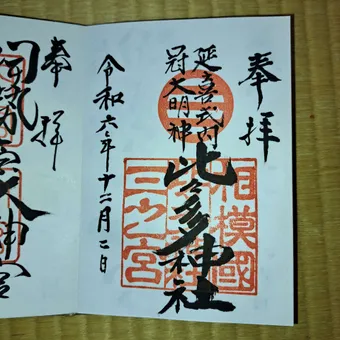 奉拝
延喜式内
冠大明神
相模國
比々多神社
三之宮
令和六年十二月二日
奉拝